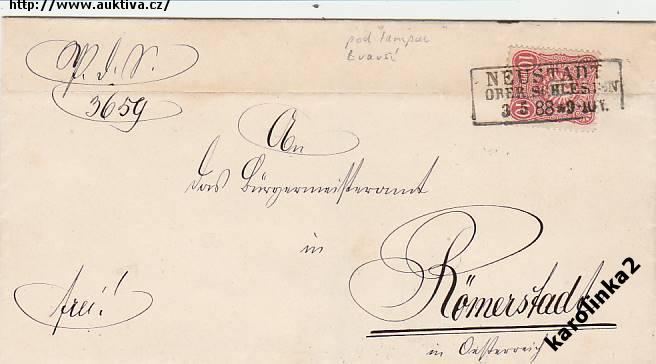 http://www.auktiva.cz/
P. d. S.
3659
NEUSTADT
OBER SCHLESIEN
3 5 88 * 9-10 V.
10
An
das Bürgermeisteramt
in
Römerstadt
in Oesterreich
frei!
karolinka2